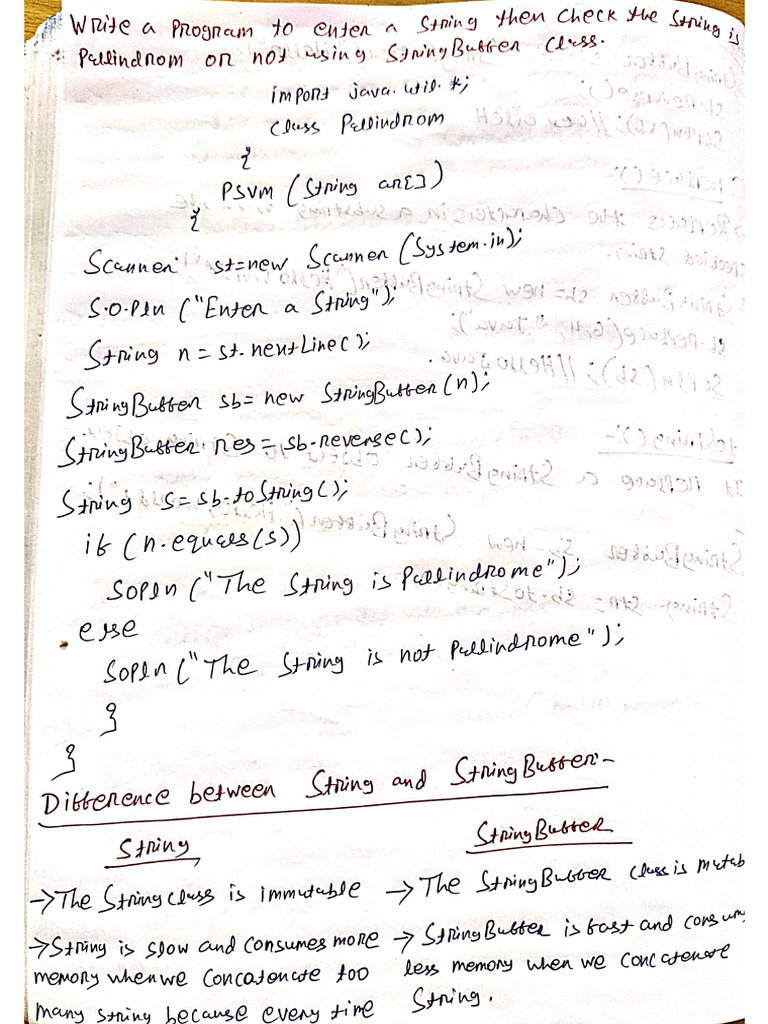 Write a Program to enter a String then check the String is
Pallindrom or not using StringBuffer class.
import java.util.*;
class Pallindrom
{
PSVM (String ar[])
{
Scanner st=new Scanner (System.in);
S.O.Pln ("Enter a String");
String n = st.nextLine();
StringBuffer sb= new StringBuffer(n);
StringBuffer res = sb.reverse();
String s= sb.toString();
if (n.equals(s))
SOPln ("The String is Pallindrome");
else
SOPln ("The String is not Pallindrome");
}
}
Difference between String and StringBuffer:-
String StringBuffer
→The String class is immutable → The StringBuffer class is mutab
→String is slow and consumes more → StringBuffer is fast and consum
memory when we concatenate too less memory when we concatenate
many string because every time String.